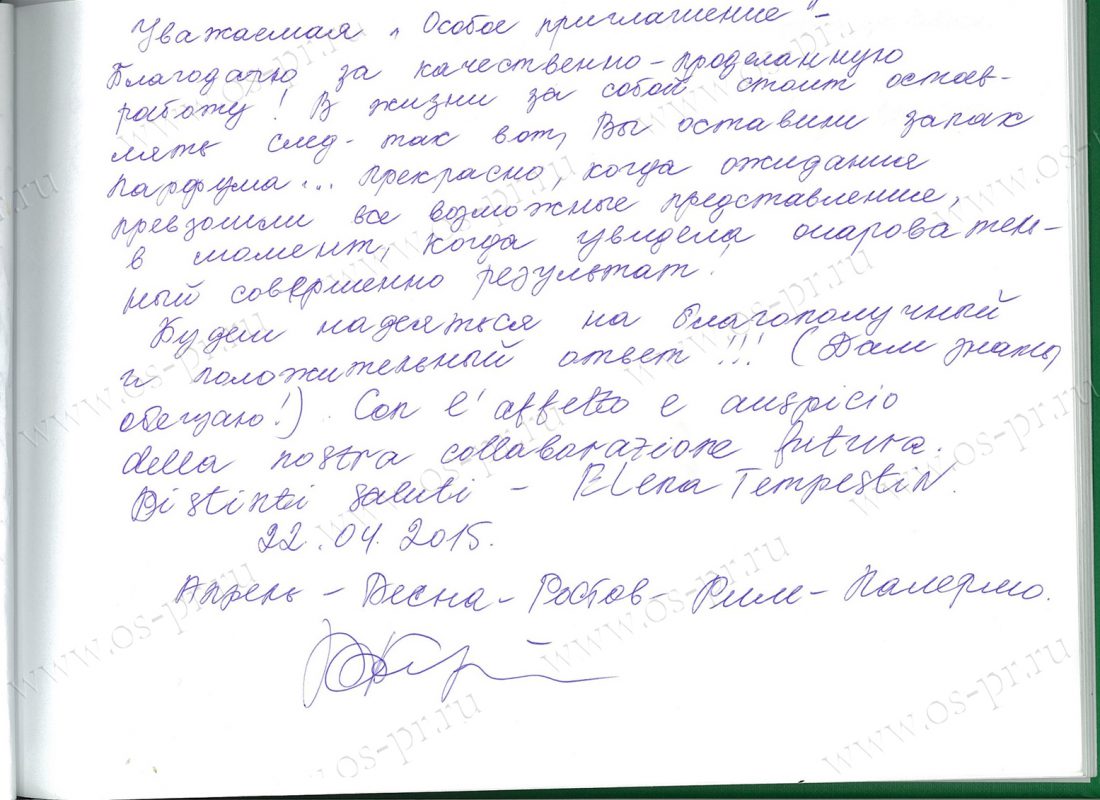 Уважаемая „Особое приглашение" -
Благодарю за качественно-проделанную
работу! В жизни за собой стоит остав-
лять след - так вот, Вы оставили запах
парфума... прекрасно, когда ожидания
превзошли все возможные представление,
в момент, когда увидела очарователь-
ный совершенно результат.
Будем надеяться на благополучный
и положительный ответ!!! (Дам знать,
обещаю!). Con l'affetto e auspicio
della nostra collaborazione futura.
Distinti saluti - Elena Tempestin.
22.04.2015.
Апрель - Весна - Ростов - Рим - Палермо.
www.os-pr.ru